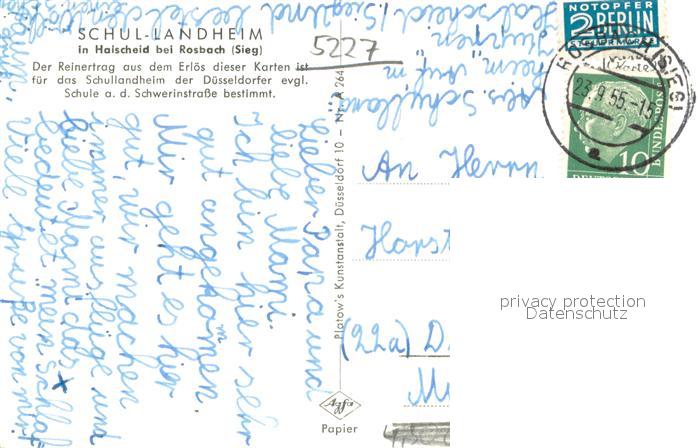 SCHUL-LANDHEIM
in Halscheid bei Rosbach (Sieg)
Der Reinertrag aus dem Erlös dieser Karten ist
für das Schullandheim der Düsseldorfer evgl.
Schule a. d. Schwerinstraße bestimmt.
5227
Lieber Papa und
liebe Mami.
Ich bin hier sehr
gut angekommen
Mir geht es hier
gut, wir machen
immer ausflüge und
Liebe Mami das x
bedeutet mein Schlaf
Viele Grüße von mir
Halscheid /Sieg
Platow's Kunstanstalt, Düsseldorf 10 - Nr. A 264
Agfa
Papier
An Herrn
Horst
(22a) D
NOTOPFER
2 BERLIN
STEUERMARKE
(SIEG)
23.9.55.-15
a
10
DEUTSCHE
BUNDESPOST
privacy protection
Datenschutz